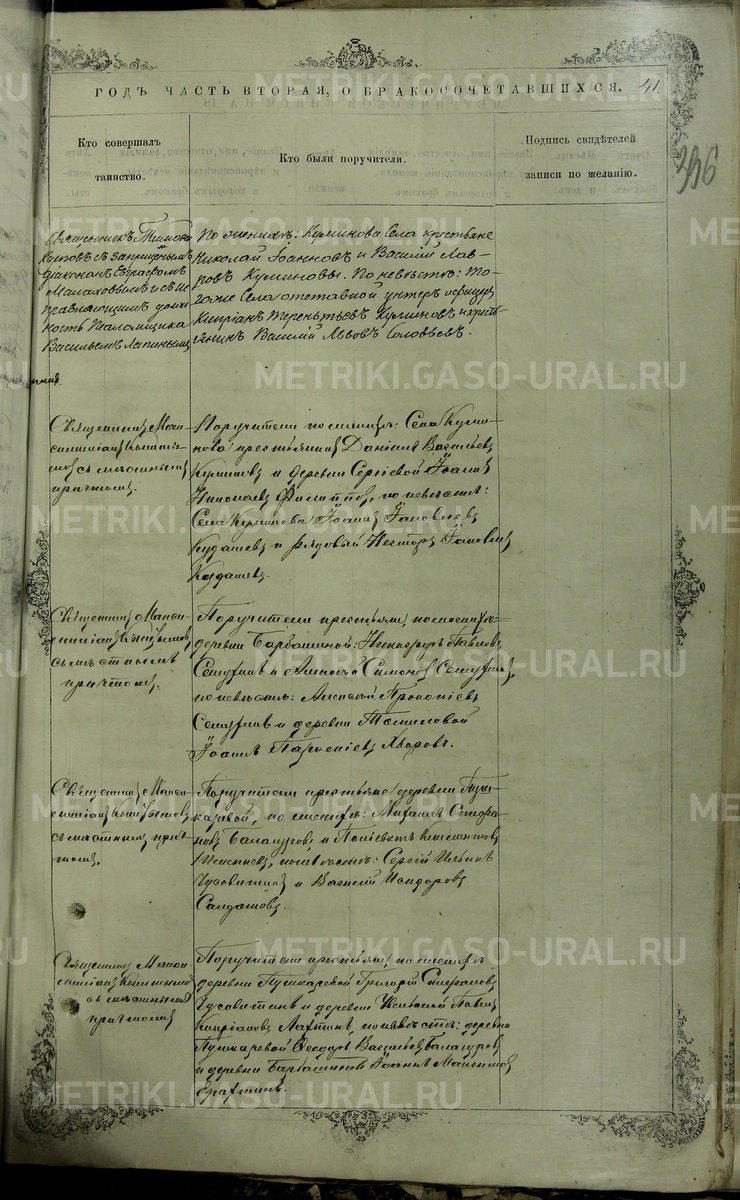 ГОДЪ ЧАСТЬ ВТОРАЯ, О БРАКОСОЧЕТАВШИХСЯ. 41.
396
Кто совершалъ
таинство.
Кто были поручители.
Подпись свидѣтелей
записи по желанію.
Священникъ
діаконамъ Евграфомъ
Малаховымъ
правляющимъ долж
ность Псаломщика
Васильемъ Лапинымъ
По женихѣ: Куминова Села крестьяне
Николай Іоанновъ и Василій Лав-
ровъ Куминовы. По невѣстѣ: То-
гоже Села отставной унтеръ офицеръ
Кипріанъ Терентьевъ Куминовъ и крест
янинъ Василій Львовъ Соловьевъ.
Священникъ Макси
мъ съ мѣстнымъ
причтомъ.
Поручители по женихѣ: Села Куми-
нова крестьянинъ Даніилъ Васильевъ
Куминовъ и деревни Сергѣевой Іоаннъ
Николаевъ Филипповъ, по невѣстѣ:
Села Куминова Іоаннъ Іаковлевъ
Кудашевъ и рядовый Несторъ Іаковлевъ
Кудашевъ.
Священникъ Макси
съ мѣстнымъ
причтомъ.
Поручители крестьяне, по женихѣ
деревни Барбашиной: Никифоръ Павловъ
и Алексѣй Симоновъ
по невѣстѣ: Алексѣй Прокопіевъ
и деревни Томиловой
Іоаннъ Парѳеніевъ Хворовъ.
Священникъ Макси
съ мѣстнымъ прич
томъ.
Поручители крестьяне деревни Пуш
каревой, по женихѣ: Михаилъ Стефа
новъ Балагуровъ и Климентовъ
по невѣстѣ: Сергѣй Ильинъ
Чусовитинъ и Василій Исидоровъ
Салдатовъ.
Священникъ Макси
съ мѣстнымъ
причтомъ
Поручители крестьяне, по женихѣ
деревни Пушкаревой Григорій
Чусовитинъ и деревни Павелъ
Кипріановъ Лахтинъ, по невѣстѣ: деревни
Пушкаревой Ѳеодоръ Васильевъ Балагуровъ
и деревни Барбашиной Іоаннъ Максимовъ
METRIKI.GASO-URAL.RU